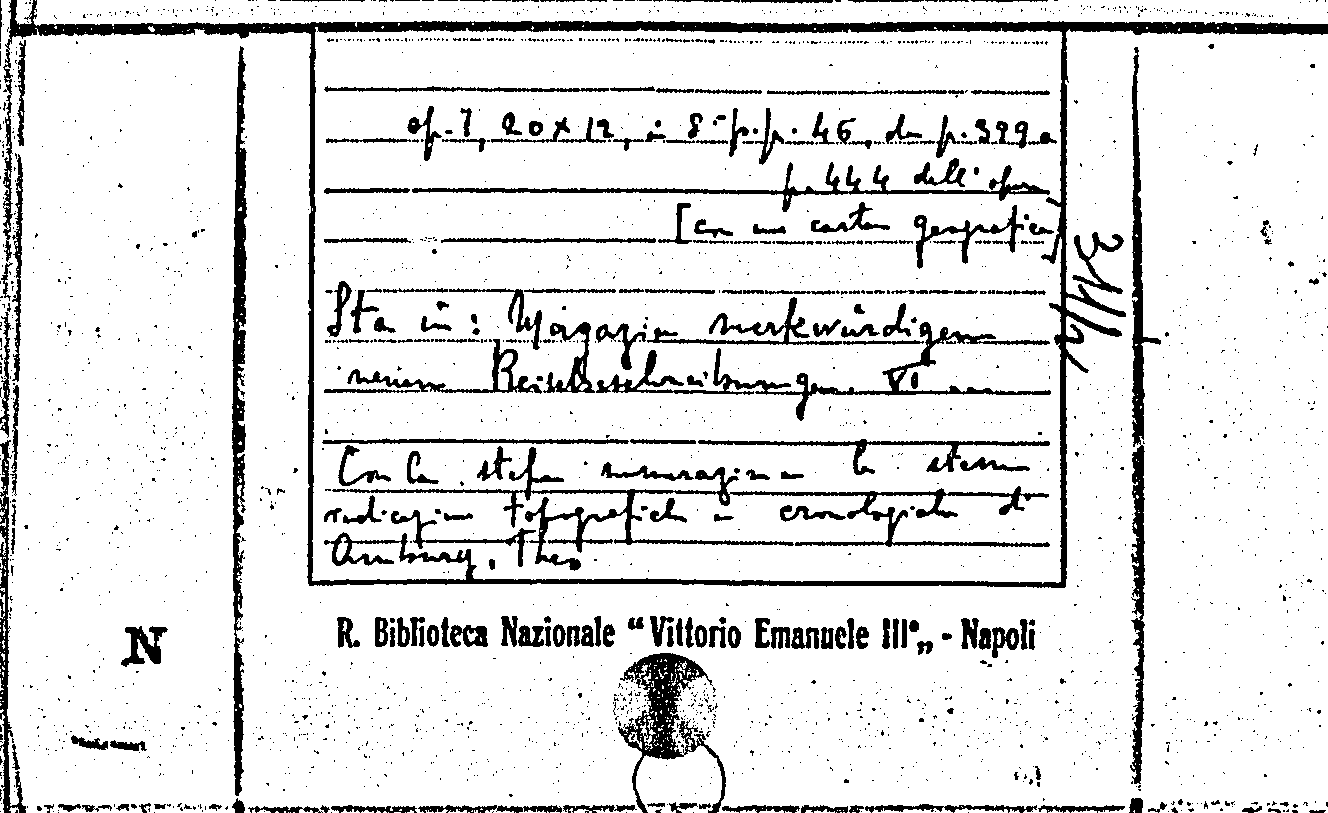 op. 7, 20 x 12, in 8° p.p. 46, da p. 399 a
p. 444 dell'opera
[con una carta geografica]
Sta in: Magazin merkwürdigen
neuen Reisebeschreibungen VI
Con la stessa numerazione la stessa
indicazione topografica e cronologica di
Amburg, Theo
R. Biblioteca Nazionale “Vittorio Emanuele III°„ - Napoli
N